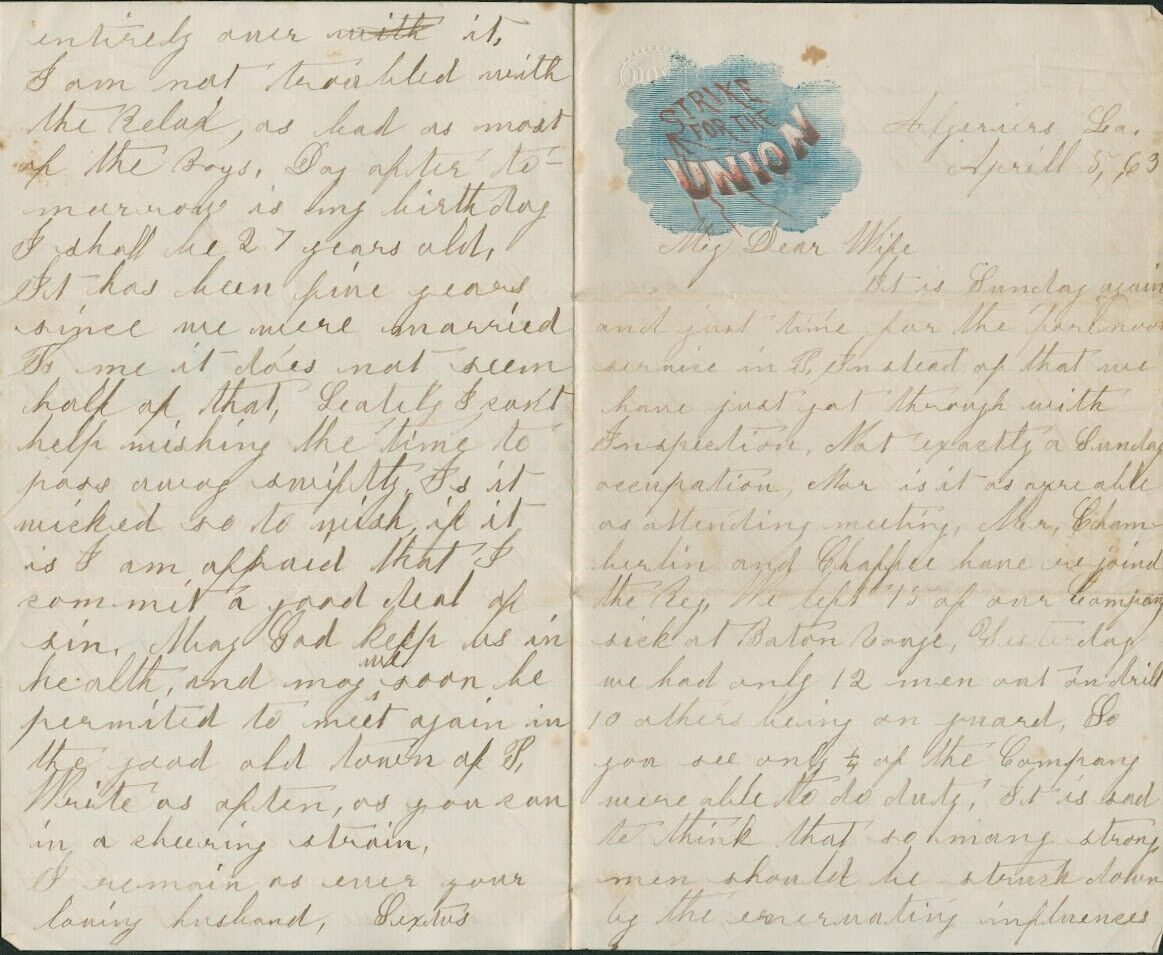 STRIKE
FOR THE
UNION
Algeriers La.
Aprill 5, 63
My Dear Wife
It is Sunday again
and just time for the forenoon
service in P, Instead of that we
have just got through with
Inspection, Not exactly a Sunday
occupation, Nor is it as agreable
as attending meeting, Mr, Cham-
berlin and Chaffee have rejoind
the Reg, We left 15 of our Company
sick at Baton Rouge, Yesterday
we had only 12 men out on drill
10 others being on guard, So
you see only ¼ of the Company
were able to do duty, It is sad
to think that so many strong
men should be struck down
by the enervating influences
entirely over with it,
I am not troubled with
the Relax, as bad as most
of the Boys, Day after to-
morrow is my birthday
I shall be 27 years old,
It has been five years
since we were married
To me it does not seem
half of that, Leately I cant
help wishing the time to
pass away swiftly, Is it
wicked so to wish, if it
is I am affraid that I
commit a good deal of
sin, May God keep us in
health, and may we soon be
permited to meet again in
the good old town of P,
Write as often, as you can
in a cheering strain,
I remain as ever your
loving husband, Sextus